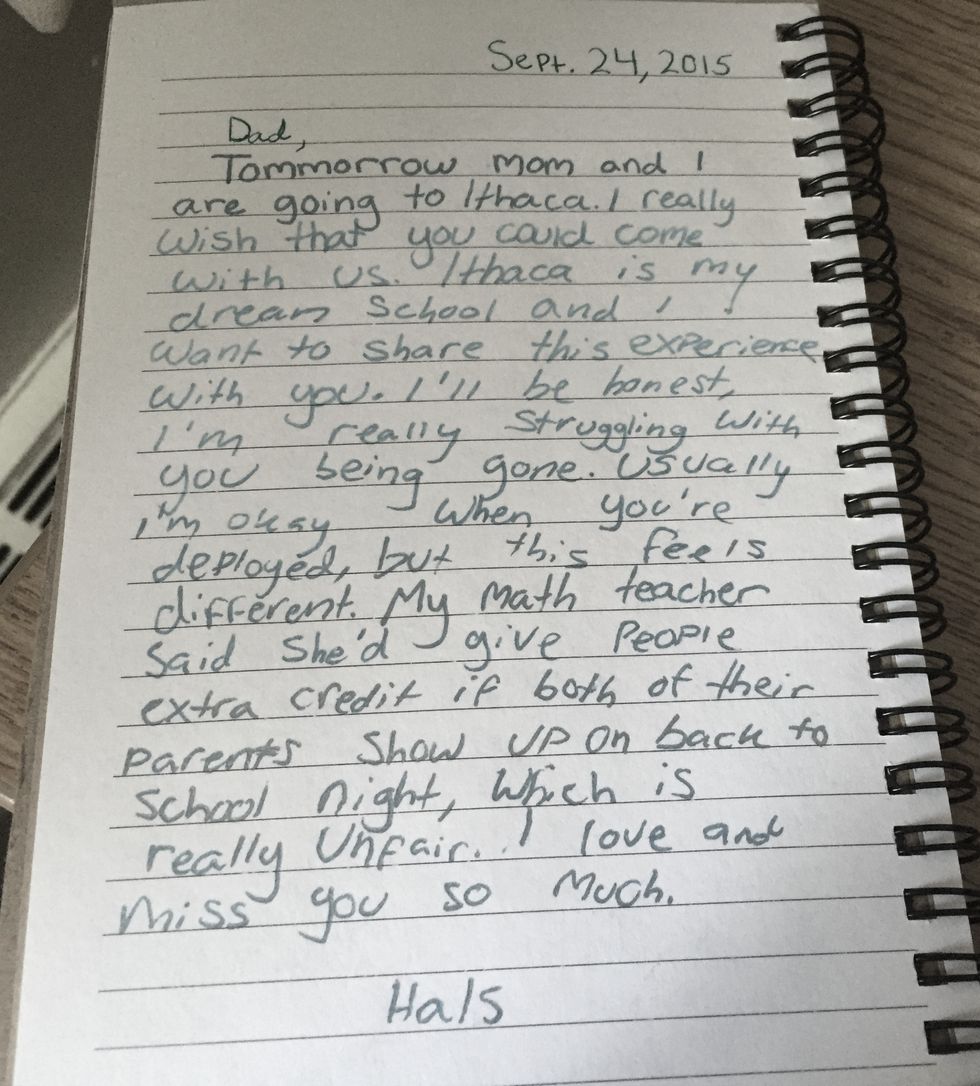 Sept. 24, 2015
Dad,
Tommorrow mom and I
are going to Ithaca. I really
wish that you could come
with us. Ithaca is my
dream school and I
want to share this experience
with you. I'll be honest,
I'm really struggling with
you being gone. Usually
I'm okay when you're
deployed, but this feels
different. My math teacher
said she'd give people
extra credit if both of their
parents show up on back to
school night, which is
really unfair. I love and
miss you so much.
Hals